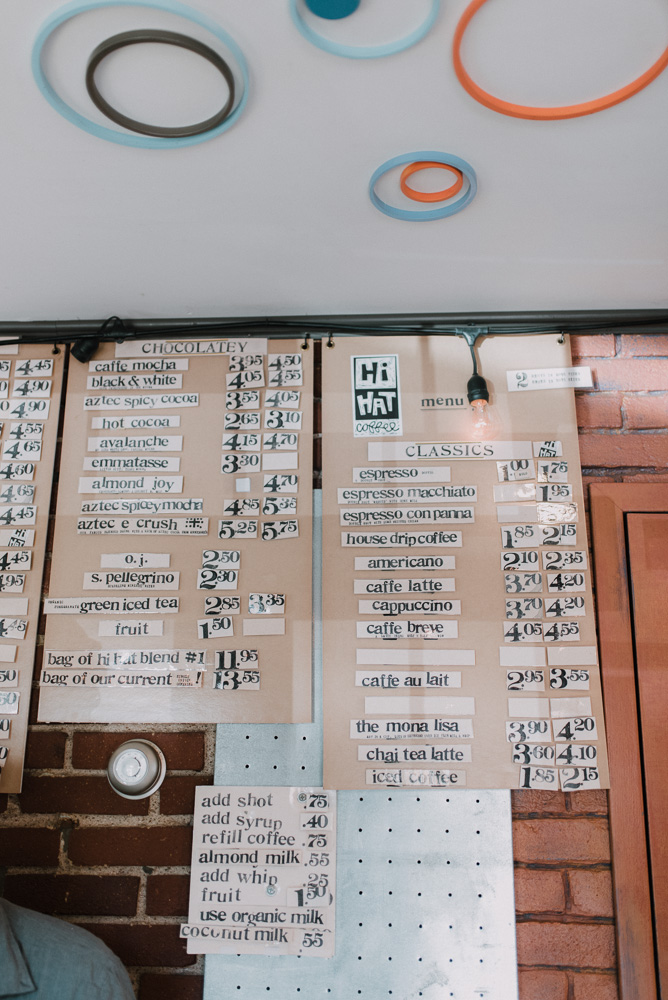 4.45
4.90
4.90
4.55
4.60
4.65
4.65
4.45
4.45
4.95
4.45
CHOCOLATEY
caffe mocha 3.95 4.50
black & white 4.05 4.55
aztec spicy cocoa
hot cocoa 2.65 3.10
avalanche 4.15 4.70
emmatasse 3.30
almond joy 4.70
aztec spicey mocha 4.85 5.35
aztec e crush 5.25 5.75
o.j. 2.50
s. pellegrino 2.30
green iced tea 2.85 3.35
fruit 1.50
bag of hi hat blend #1 11.95
bag of our current ! 13.55
Hi
HAT
coffee
menu
2
CLASSICS
espresso 1.00 1.75
espresso macchiato 1.95
espresso con panna
house drip coffee 1.85 2.15
americano 2.10 2.35
caffe latte 3.70 4.20
cappuccino 3.70 4.20
caffe breve 4.05 4.55
caffe au lait 2.95 3.55
the mona lisa 3.90 4.20
chai tea latte 3.60 4.10
iced coffee 1.85 2.15
add shot .75
add syrup .40
refill coffee .75
almond milk .55
add whip .25
fruit 1.50
use organic milk
coconut milk .55